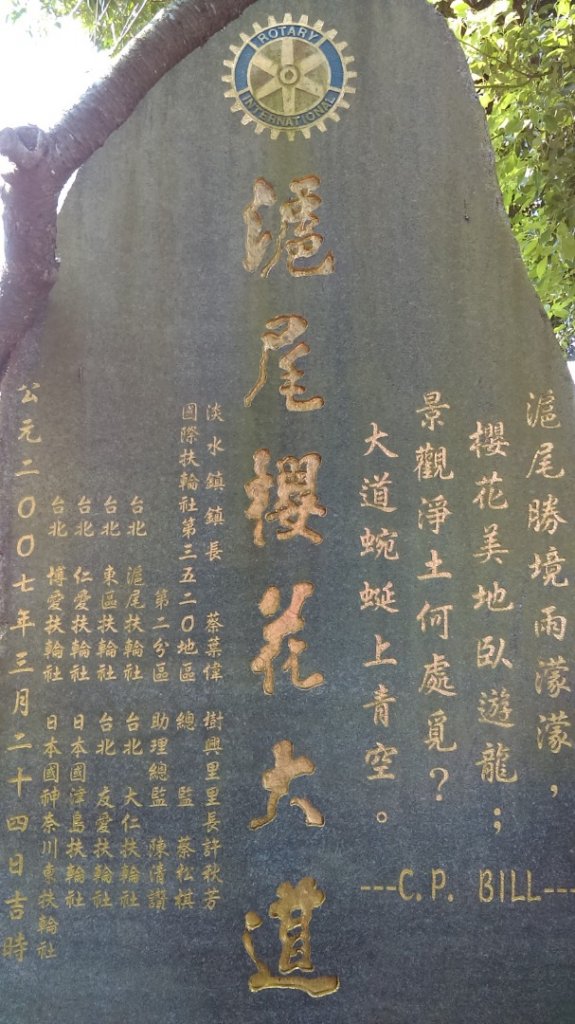 ROTARY
INTERNATIONAL
滬尾勝境雨濛濛，
櫻花美地臥遊龍；
景觀淨土何處覓？
大道蜿蜒上青空。
---C.P. BILL---
滬尾櫻花大道
淡水鎮鎮長 蔡葉偉 樹興里里長許秋芳
國際扶輪社第三五二〇地區 總監 蔡松棋
第二分區 助理總監 陳清讚
台北 滬尾扶輪社 台北 大仁扶輪社
台北 東區扶輪社 台北 友愛扶輪社
台北 仁愛扶輪社 日本國津島扶輪社
台北 博愛扶輪社 日本國神奈川東扶輪社
公元二〇〇七年三月二十四日吉時